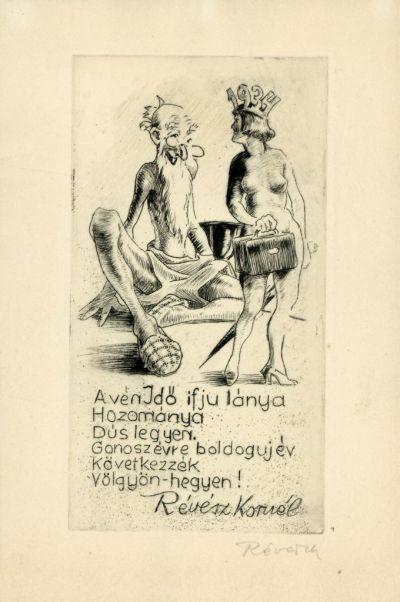 1934
A vén Idő ifju lánya
Hozománya
Dús legyen.
Gonoszévre boldogujév
Következzék
Völgyön-hegyen!
Révész Kornél